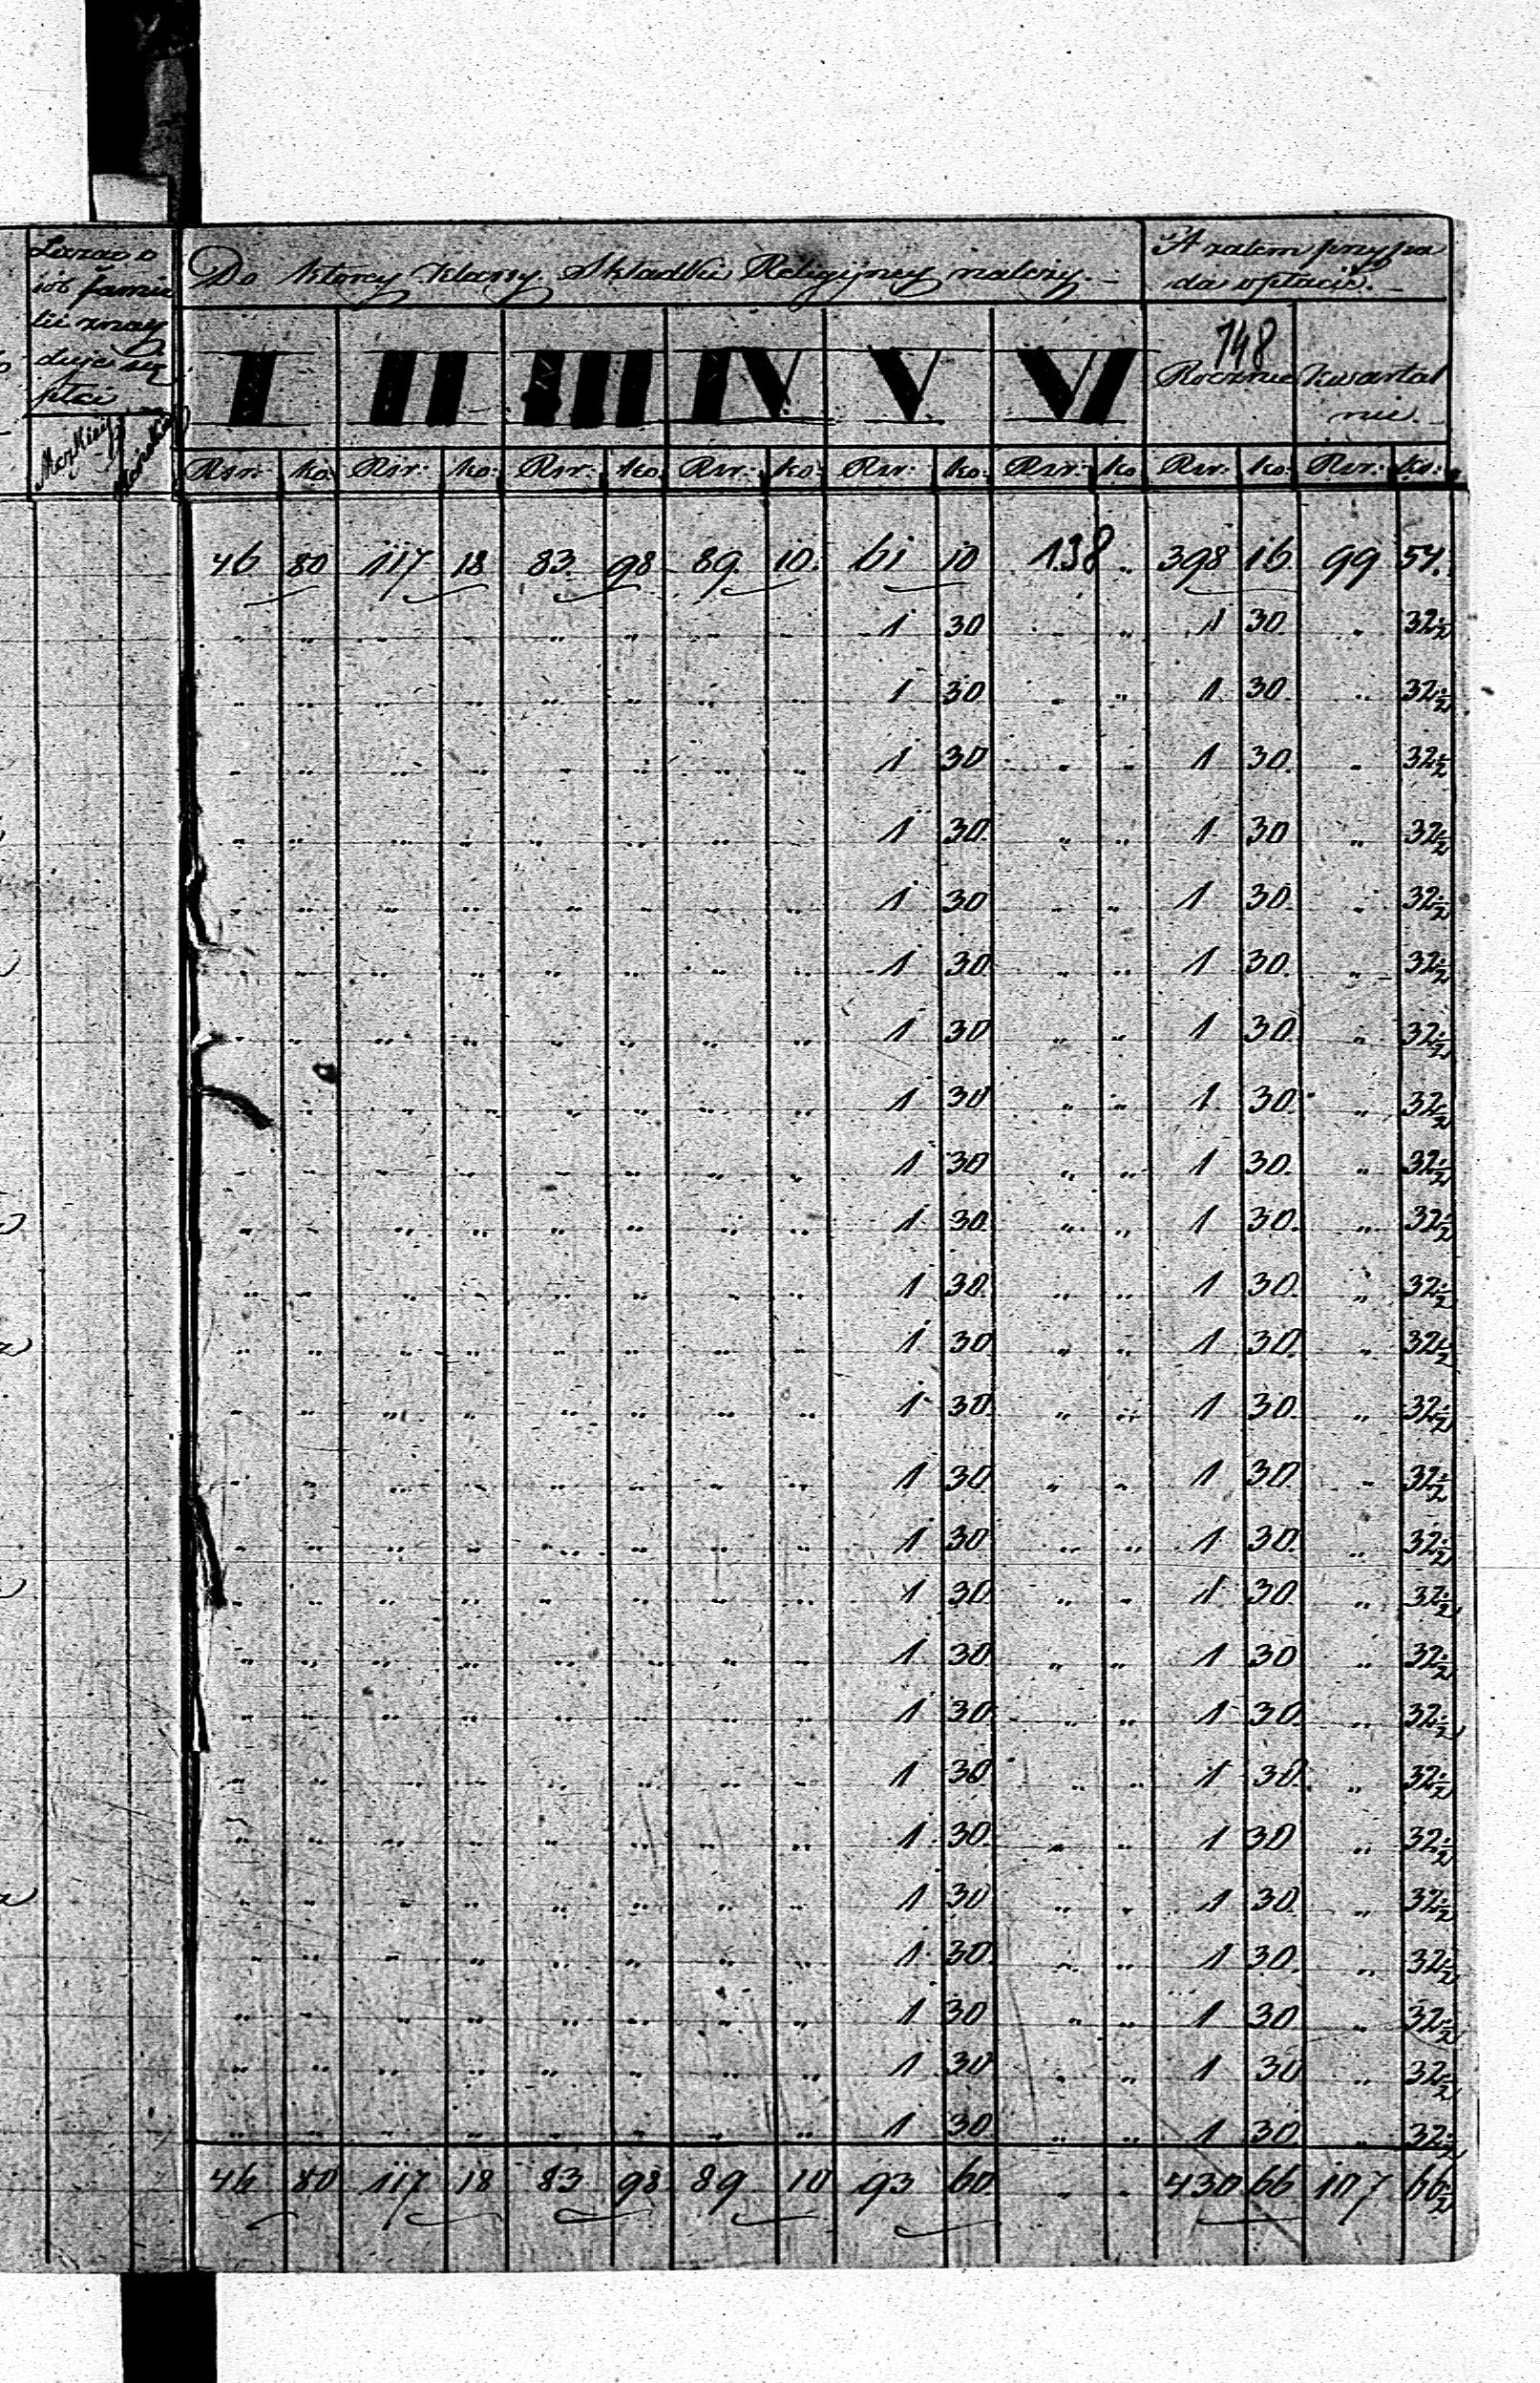 Liczba o
sób famie
lii znay
duje się
płci
Męzkiey Żeńskiey
Do ktorey Klassy Składki Religijney należy.
A zatem przypa
da opłacić.
I II III IV V VI
148
Rocznie Kwartal
nie.
Rsr: ko: Rsr: ko: Rsr: ko: Rsr: ko: Rsr: ko: Rsr: ko: Rsr: ko: Rsr: ko:
46 80 117 18 83 98 89 10 61 10 138 „ 398 16 99 54.
„ „ „ „ „ „ „ „ 1 30 „ „ 1 30 „ 32½
„ „ „ „ „ „ „ „ 1 30 „ „ 1 30 „ 32½
„ „ „ „ „ „ „ „ 1 30 „ „ 1 30 „ 32½
„ „ „ „ „ „ „ „ 1 30 „ „ 1 30 „ 32½
„ „ „ „ „ „ „ „ 1 30 „ „ 1 30 „ 32½
„ „ „ „ „ „ „ „ 1 30 „ „ 1 30 „ 32½
„ „ „ „ „ „ „ „ 1 30 „ „ 1 30 „ 32½
„ „ „ „ „ „ „ 1 30 „ „ 1 30 „ 32½
„ „ „ „ „ „ „ „ 1 30 „ „ 1 30 „ 32½
„ „ „ „ „ „ „ „ 1 30 „ „ 1 30 „ 32½
„ „ „ „ „ „ „ „ 1 30 „ „ 1 30 „ 32½
„ „ „ „ „ „ „ „ 1 30 „ „ 1 30 „ 32½
„ „ „ „ „ „ „ „ 1 30 „ „ 1 30 „ 32½
„ „ „ „ „ „ „ „ 1 30 „ „ 1 30 „ 32½
„ „ „ „ „ „ „ „ 1 30 „ „ 1 30 „ 32½
„ „ „ „ „ „ „ „ 1 30 „ „ 1 30 „ 32½
„ „ „ „ „ „ „ „ 1 30 „ „ 1 30 „ 32½
„ „ „ „ „ „ „ „ 1 30 „ „ 1 30 „ 32½
„ „ „ „ „ „ „ „ 1 30 „ „ 1 30 „ 32½
„ „ „ „ „ „ „ „ 1 30 „ „ 1 30 „ 32½
„ „ „ „ „ „ „ „ 1 30 „ „ 1 30 „ 32½
„ „ „ „ „ „ „ „ 1 30 „ „ 1 30 „ 32½
„ „ „ „ „ „ „ „ 1 30 „ „ 1 30 „ 32½
„ „ „ „ „ „ „ „ 1 30 „ „ 1 30 „ 32½
„ „ „ „ „ „ „ „ 1 30 „ „ 1 30 „ 32½
46 80 117 18 83 98 89 10 93 60 „ „ 430 66 107 66½